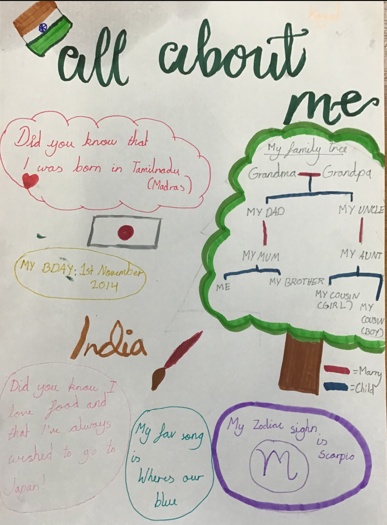 all about
me
Did you know that
I was born in Tamilnadu
(Madras)
My family tree
Grandma
Grandpa
MY DAD
MY UNCLE
MY MUM
MY AUNT
ME
MY BROTHER
MY COUSIN
(GIRL)
MY
COUSIN
(BOY)
=Marry
=Child
MY BDAY: 1st November
2014
India
Did you know I
love food and
that I've always
wished to go to
Japan!
My fav song
is
Wheres our
blue
My Zodiac sighn
is
Scorpio